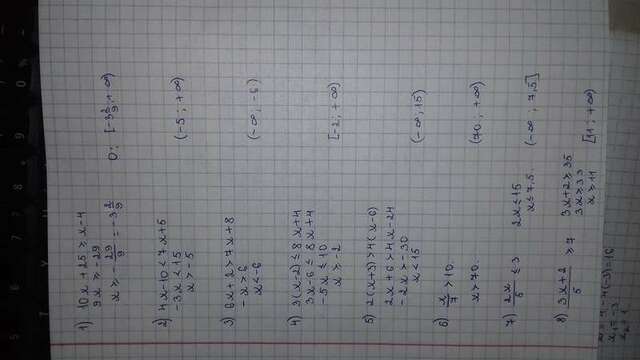 1) 10x + 25 ≥ x - 4
9x ≥ -29
x ≥ - 29/9 = -3 2/9 О: [-3 2/9; +∞)
2) 4x - 10 < 7x + 5
-3x < 15
x > -5 (-5; +∞)
3) 6x + 2 > 7x + 8
-x > 6
x < -6 (-∞; -6)
4) 3(x-2) ≤ 8x+4
3x - 6 ≤ 8x + 4
-5x ≤ 10
x ≥ -2 [-2; +∞)
5) 2(x+3) > 4(x-6)
2x + 6 > 4x - 24
-2x > -30
x < 15 (-∞; 15)
6) x/7 > 10.
x > 70. (70; +∞)
7) 2x/5 ≤ 3 2x ≤ 15
x ≤ 7,5. (-∞; 7,5]
8) 3x+2/5 ≥ 7 3x+2 ≥ 35
3x ≥ 33
x ≥ 11 [11; +∞)
x₁ = -3